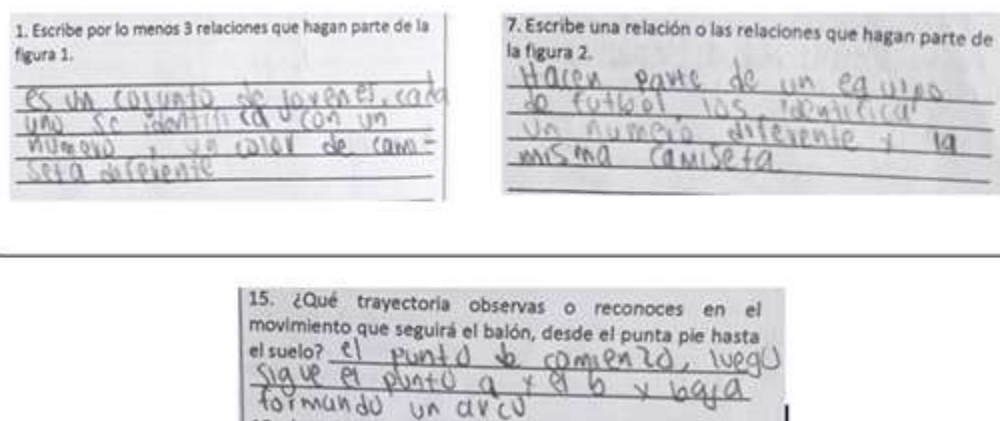 1. Escribe por lo menos 3 relaciones que hagan parte de la
figura 1.
es un cojunto de jovenes, cada
uno se identifica con un
numero y un color de cami-
seta diferente
7. Escribe una relación o las relaciones que hagan parte de
la figura 2.
Hacen parte de un equipo
de futbol los identifica
un numero diferente y la
misma camiseta
15. ¿Qué trayectoria observas o reconoces en el
movimiento que seguirá el balón, desde el punta pie hasta
el suelo? el punto de comienzo, luego
sigue el punto a y el b y baja
formando un arco